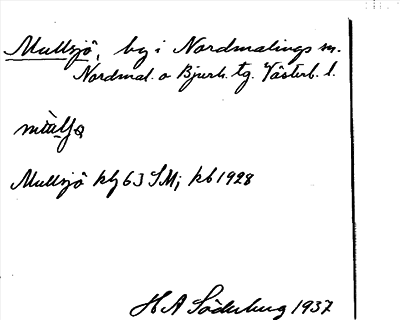 Mullsjö, by i Nordmalings sn.
Nordmal. o Bjurh. tg. Västerb. l.
Mullsjö kbg 63 SM; kb 1928
H A Söderberg 1937